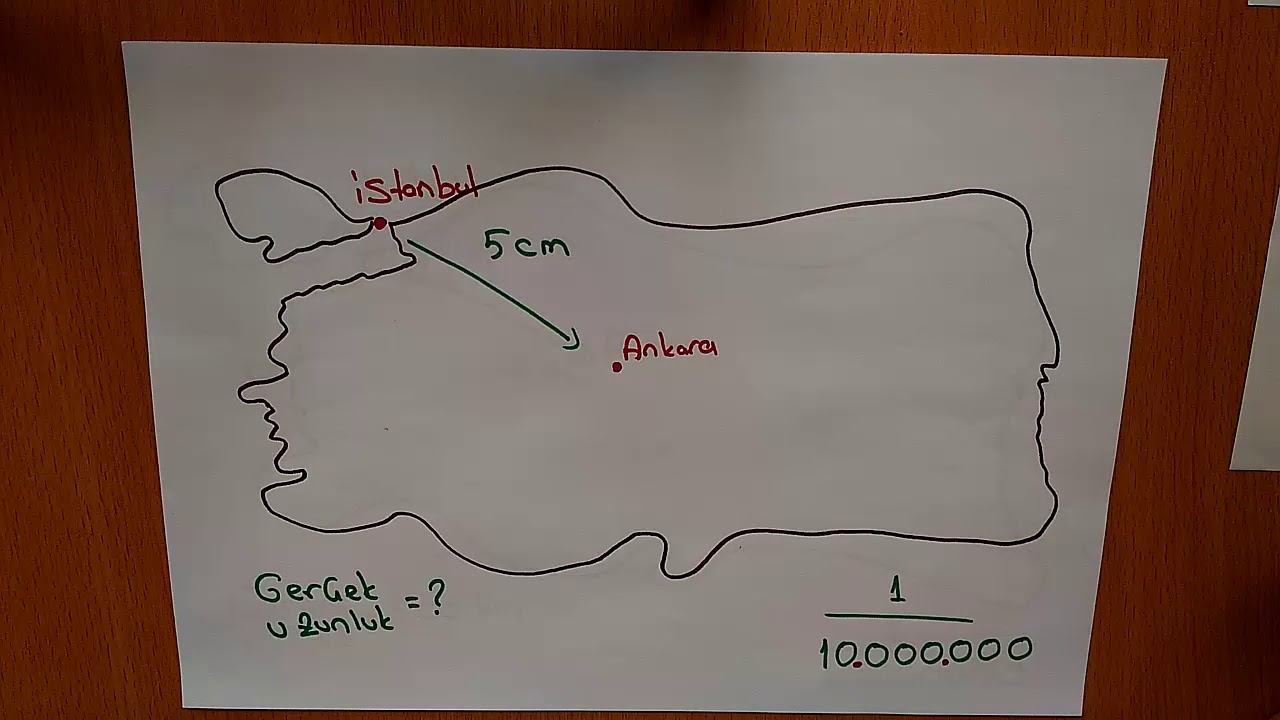 istanbul
5cm
Ankara
Gerçek
uzunluk = ?
1
10.000.000